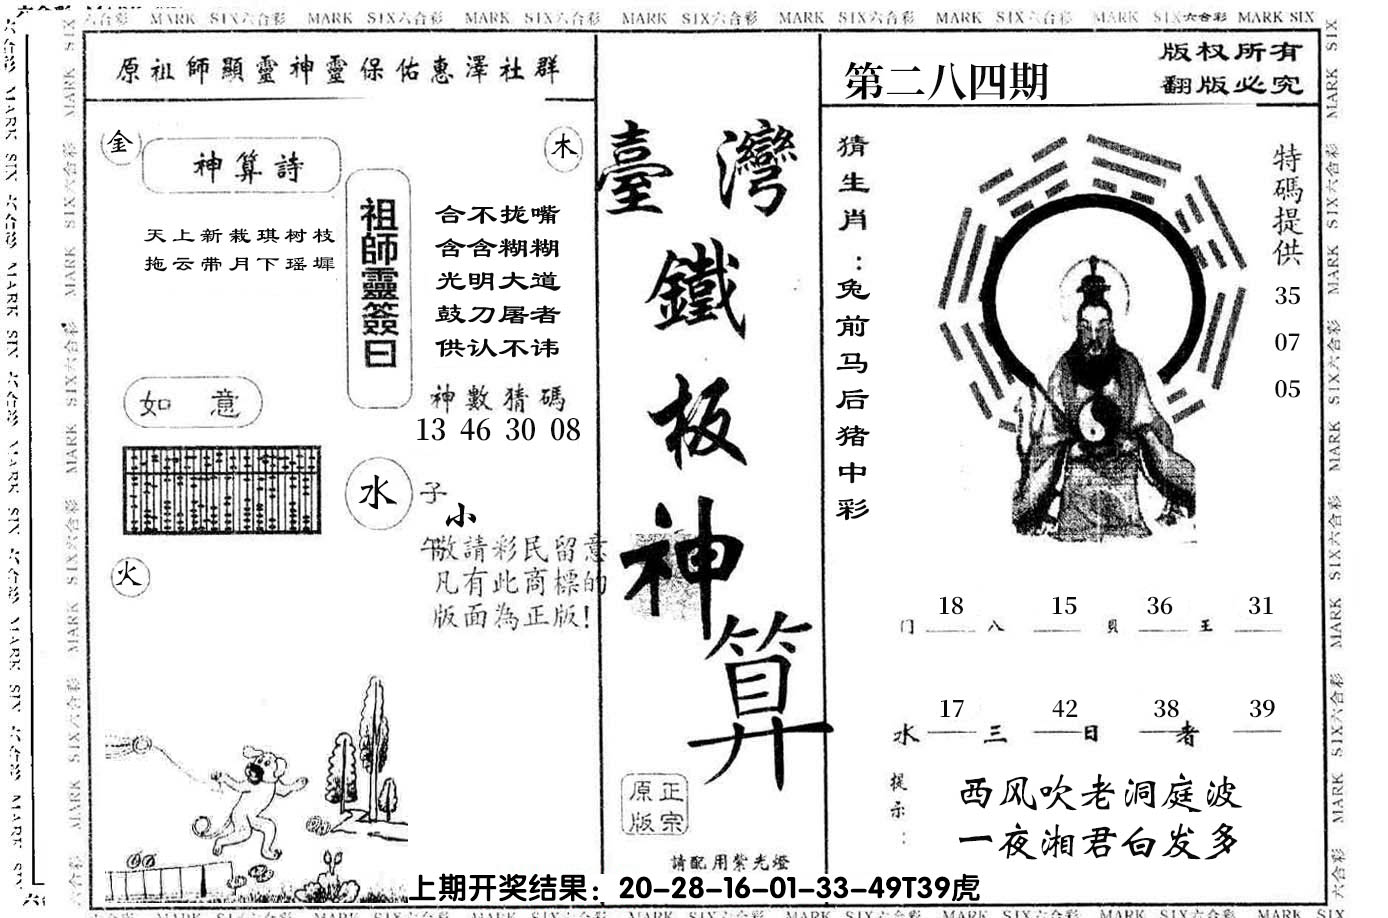 六合彩 MARK SIX六合彩 MARK SIX六合彩 MARK SIX六合彩 MARK SIX六合彩 MARK SIX六合彩 MARK SIX六合彩 MARK SIX六合彩 MARK SIX
原祖師顯靈神靈保佑惠澤社群
金
木
神算詩
天上新栽琪树枝
拖云带月下瑶墀
祖師靈簽曰
合不拢嘴
含含糊糊
光明大道
鼓刀屠者
供认不讳
如意
神數猜碼
13 46 30 08
水
子
小
午
敬請彩民留意
凡有此商標的
版面為正版!
火
臺灣
鐵
板
神
算
原正
版宗
請配用紫光燈
第二八四期
版权所有
翻版必究
猜生肖:兔前马后猪中彩
特碼提供
35
07
05
18 15 36 31
门 八 貝 王
17 42 38 39
水 三 日 者
提示:
西风吹老洞庭波
一夜湘君白发多
上期开奖结果：20-28-16-01-33-49T39虎